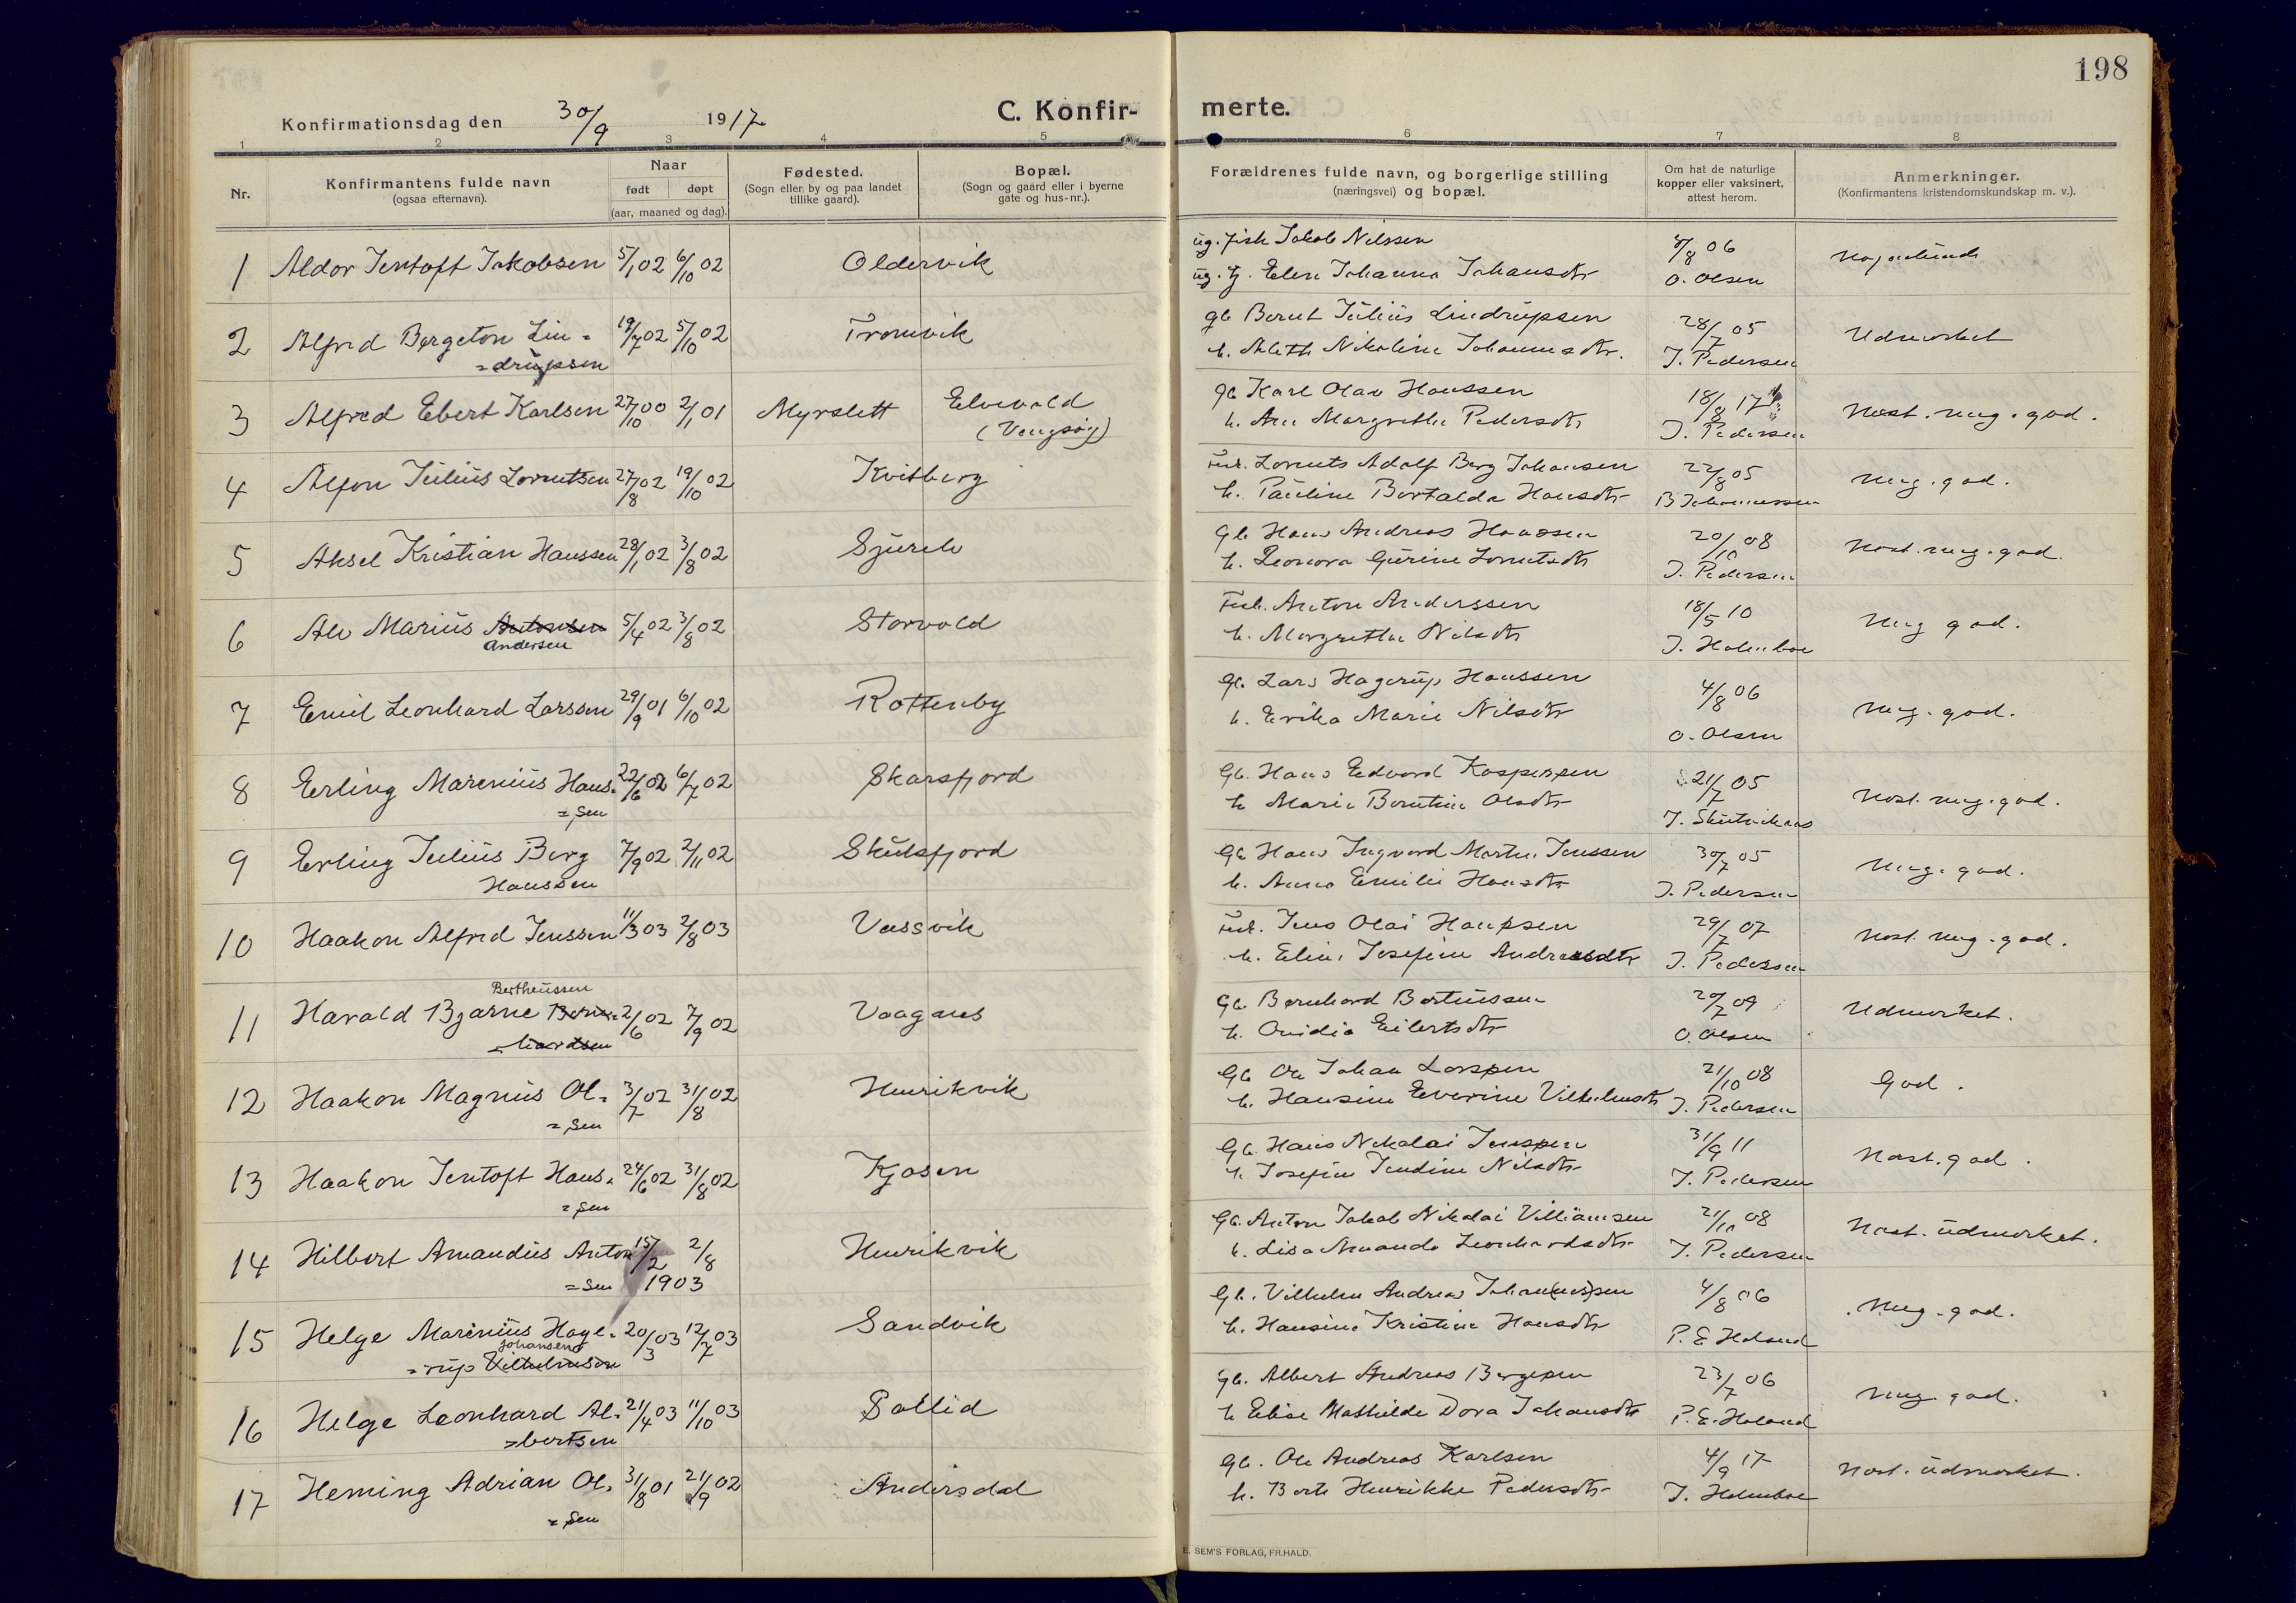 198
Konfirmationsdag den 30/9 1917
C. Konfir-
merte.
1 2 3 4 5 6 7 8
Nr.
Konfirmantens fulde navn
(ogsaa efternavn).
Naar
født døpt
(aar, maaned og dag).
Fødested.
(Sogn eller by og paa landet
tillike gaard).
Bopæl.
(Sogn og gaard eller i byerne
gate og hus-nr.).
Forældrenes fulde navn, og borgerlige stilling
(næringsvei) og bopæl.
Om hat de naturlige
kopper eller vaksinert,
attest herom.
Anmerkninger.
(Konfirmantens kristendomskundskap m. v.).
1 Aldor Jentoft Jakobsen 5/1 02 6/10 02 Oldervik ug. fisk Jakob Nilssen 4/8 06
ug. tj. Elen Johanna Johansdtr O. Olsen
2 Alfred Bergeton Lin= 19/7 02 5/10 02 Tromvik gb Bernt Julius Lindrupsen 28/7 05 Udmerket
=drupsen h. Aleth Nikoline Johannesdtr. J. Pedersen
3 Alfred Ebert Karlsen 27/10 00 2/1 01 Myrslett Elvevold gb Karl Olav Hanssen 18/8 17 Næst. meg. god.
(Vengsøy) h. Ane Margrethe Pedersdtr J. Pedersen
4 Alfon Julius Lorentsen 27/8 02 19/10 02 Kvitberg Inds. Lorents Adolf Berg Johansen 22/8 05 Meg. god.
h. Pauline Bertalda Hansdtr B Johannessen
5 Aksel Kristian Hanssen 28/1 02 3/8 02 Sjursh Gb Hans Andreas Hanssen 20/10 08 Næst. meg. god.
h. Leonora Gurine Lorentsdtr J. Pedersen
6 Alv Marius Antonsen 5/4 02 3/8 02 Storvold Inds. Anton Anderssen 18/5 10 Meg god.
Andersen h. Margrethe Nilsdtr J. Holmboe
7 Emil Leonhard Larssen 29/9 01 6/10 02 Rottenby Gb. Lars Hagerup Hanssen 4/8 06 Meg. god.
h. Erika Marie Nilsdtr O. Olsen
8 Erling Marenius Hans= 22/6 02 6/7 02 Skarsfjord Gb. Hans Edvard Kaspersen 21/7 05 Næst. meg. god.
=sen h Marie Berntine Olsdtr J. Skutvikaas
9 Erling Julius Berg 7/9 02 2/11 02 Skulsfjord Gb Hans Ingvard Martin Jenssen 30/7 05 Meg. god.
Hanssen h. Anna Emilie Hansdtr J. Pedersen
10 Haakon Alfred Jenssen 11/3 03 2/8 03 Vassvik Inds. Jens Olai Hanssen 29/7 07 Næst. meg. god.
h. Eline Josefine Andreasdtr J. Pedersen
Bertheussen
11 Harald Bjarne Bern= 2/6 02 7/9 02 Vaagnes Gb. Bernhard Bertiussen 20/7 09 Udmerket.
=hardsen h. Ovidia Eilertsdtr O. Olsen
12 Haakon Magnus Ol= 3/7 02 31/8 02 Henrikvik Gb Ole Johan Larssen 21/10 08 God.
=sen h. Hansine Everine Vilhelmsdtr J. Pedersen
13 Haakon Jentoft Hans= 24/6 02 31/8 02 Kjosen Gb. Hans Nikolai Jenssen 31/9 11 Næst. god.
=sen h. Josefine Jendine Nilsdtr J. Pedersen
14 Hilbert Amandus Anton 15/2 2/8 Henrikvik Gb. Anton Jakob Nikolai Villiamsen 21/10 08 Næst. udmerket.
=sen 1903 h. Lisa Amanda Leonhardsdtr J. Pedersen
15 Helge Marenius Hage= 20/3 03 12/7 03 Sandvik Gb. Vilhelm Andreas Johan(nes)sen 4/8 06 Meg. god.
Johansen
=rup Vilhelmsen h. Hansine Kristine Hansdtr P. E. Holand
16 Helge Leonhard Al= 21/4 03 11/10 03 Sollid Gb. Albert Andreas Bergesen 23/7 06 Meg. god.
=bertsen h Elise Mathilde Dora Johansdtr P. E. Holand
17 Heming Adrian Ol= 31/8 01 21/9 02 Andersdal Gb. Ole Andreas Karlsen 4/9 17 Næst. udmerket.
=sen h. Berte Henrikke Pedersdtr J. Holmboe
E. SEM'S FORLAG, FR.HALD.